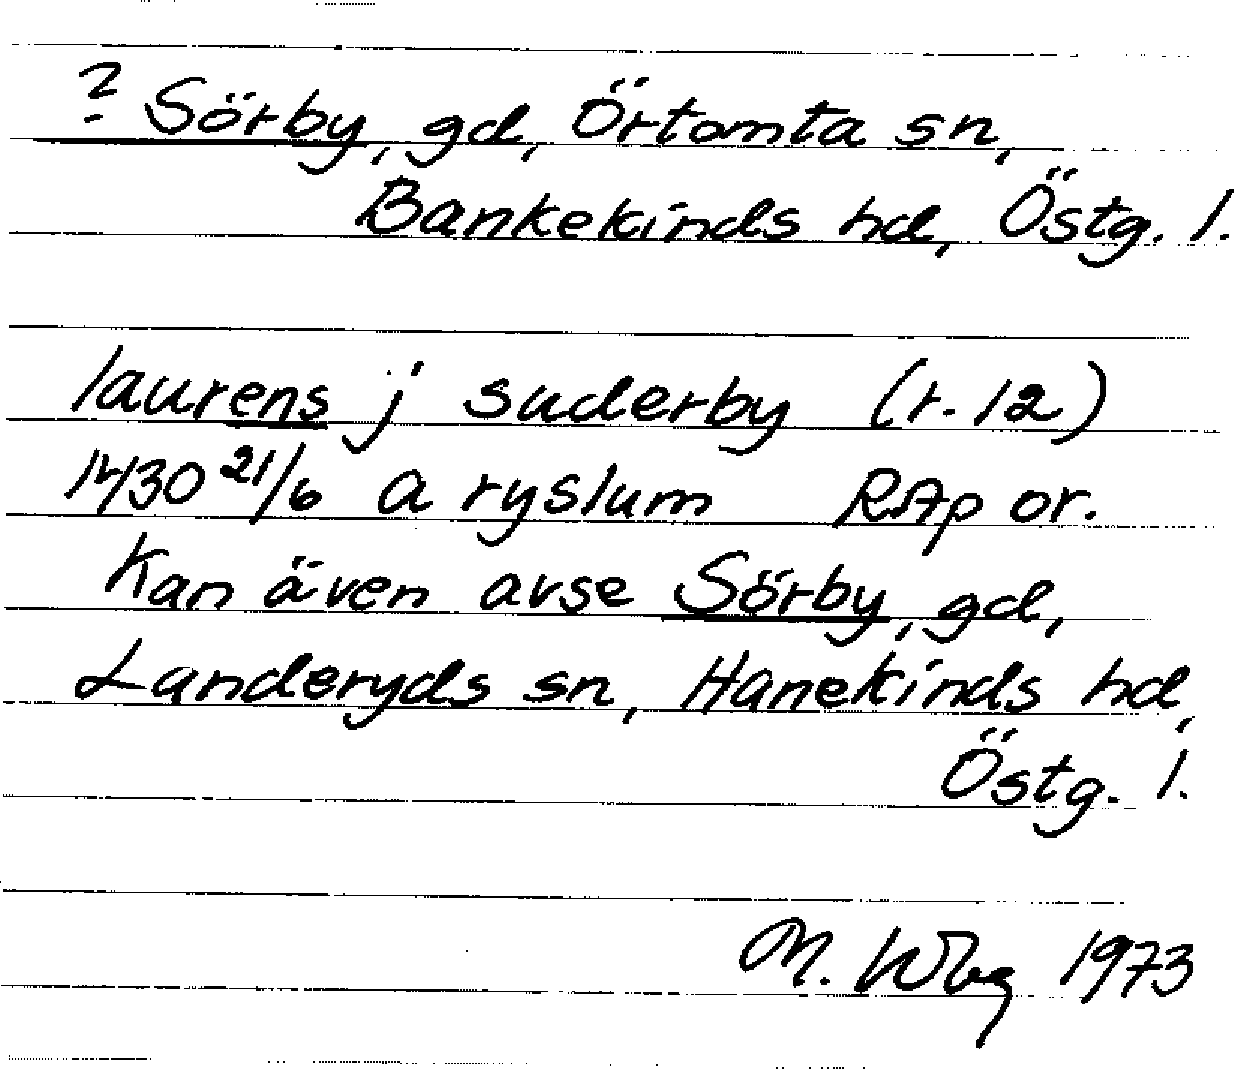 ? Sörby, gd, Örtomta sn,
Bankekinds hd, Östg. l.
laurens j suderby (r. 12)
1430 21/6 a ryslum RAp or.
Kan även avse Sörby, gd,
Landeryds sn, Hanekinds hd,
Östg. l.
M. Wbg 1973